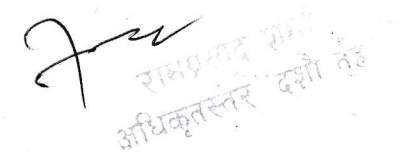 रामप्रसाद शर्मा
अधिकृतस्तर दशौ तह